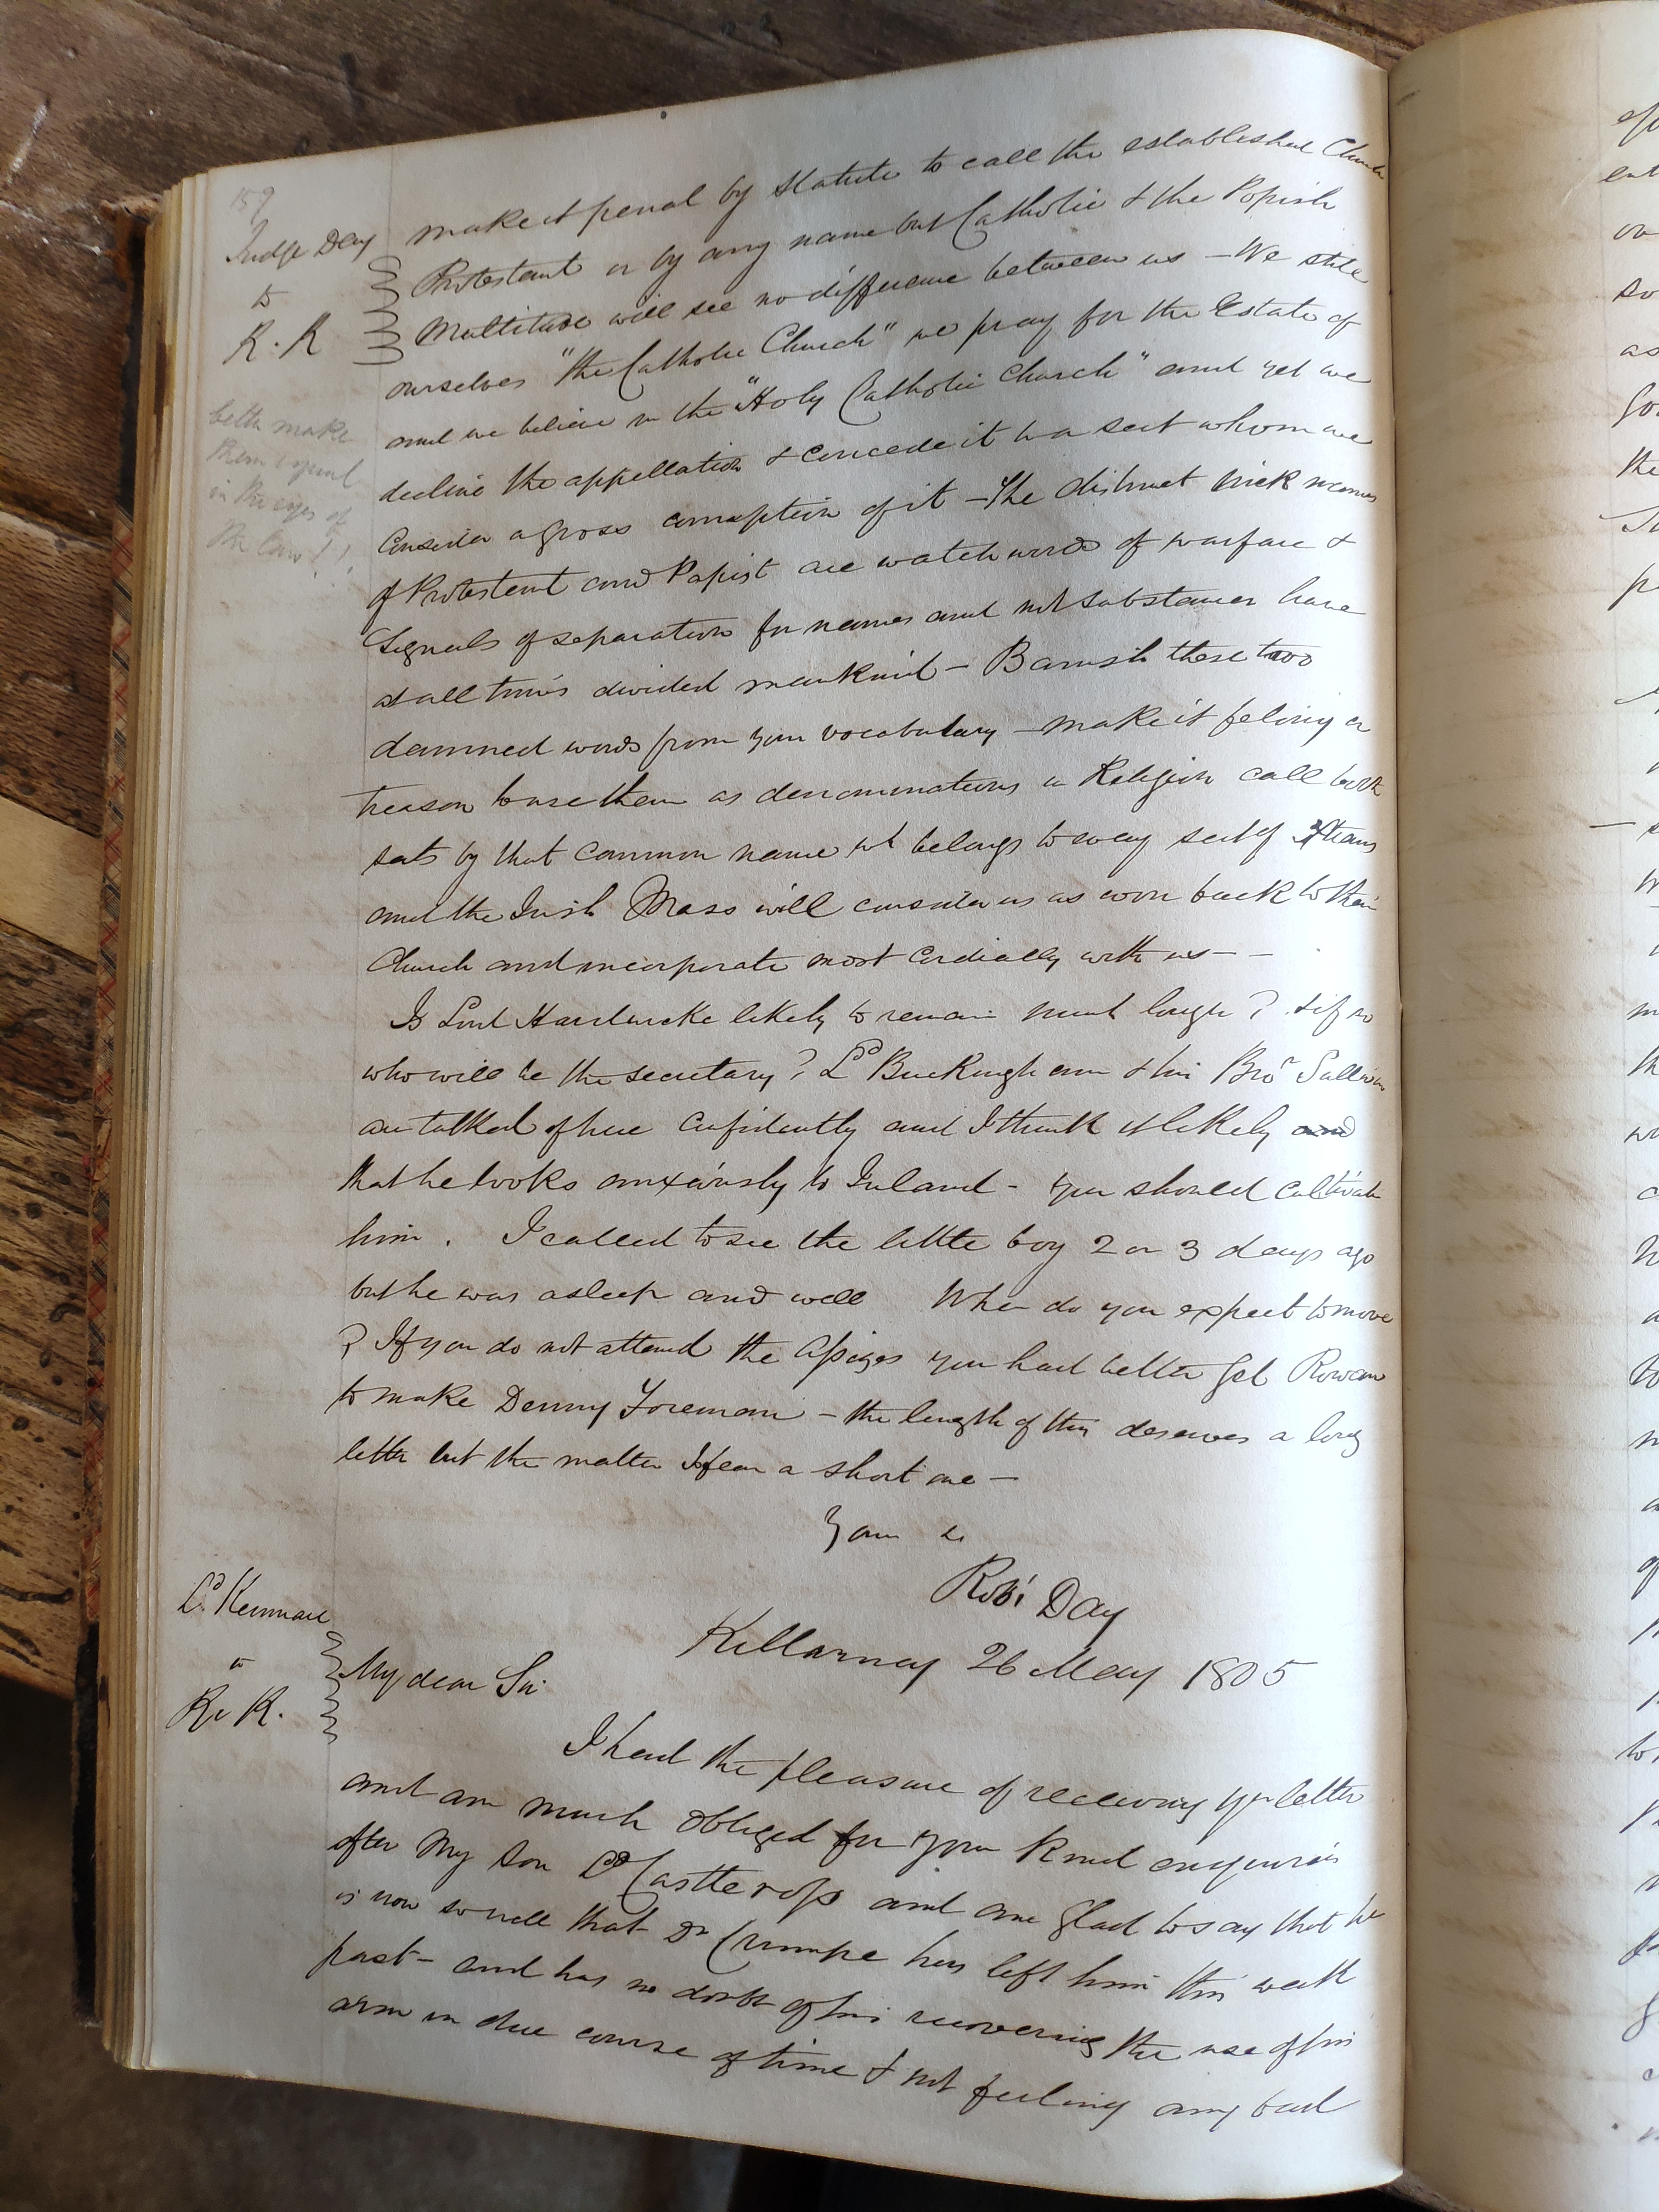 159
Judge Day
to
R. K
better make
them equal
in the eyes of
the law!!
make it penal by statute to call the established Church
Protestant or by any name but Catholic & the Popish
Multitude will see no difference between us – We stile
ourselves "the Catholic Church" we pray for the Estate of
and we believe in the "Holy Catholic Church" and yet we
decline the appellation & concede it to a sect whom we
consider a gross corruption of it – The distinct nick names
of Protestant and Papist are watchwords of warfare &
signals of separation for names and not substances have
at all times divided mankind – Banish these two
damned words from your vocabulary – make it felony or
treason to use them as denominations in Religion call both
sects by that common name wh belongs to every sect of Xtians
and the Irish Mass will consider us as won back to their
Church and incorporate most cordially with us – –
Is Lord Hardwicke likely to remain much longer? & if so
who will be the secretary? Ld Buckingham & his Bror Sullivan
are talked of here confidently and I think it likely and
that he looks anxiously to Ireland – you should cultivate
him. I called to see the little boy 2 or 3 days ago
but he was asleep and well When do you expect to move
? If you do not attend the Assizes you had better get Rowan
to make Denny Foreman – the length of this deserves a long
letter but the matter I fear a short one –
Yours &c
Robt Day
Ld. Kenmare
to
R. K.
Killarney 26 May 1805
My dear Sir
I had the pleasure of receiving yr letter
and am much obliged for your kind enquiries
after My son Ld Castlerosse and am glad to say that he
is now so well that Dr Crumpe has left him this week
past – and has no doubt of his recovering the use of his
arm in due course of time & not feeling any bad